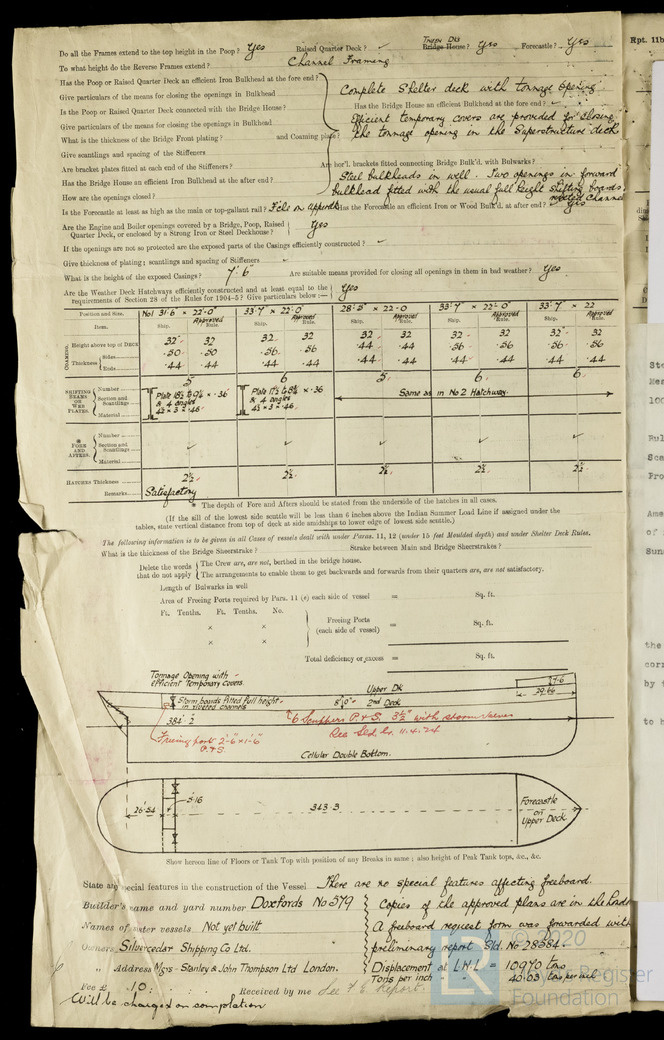 Do all the Frames extend to the top height in the Poop? Yes Raised Quarter Deck? ✓ Tween Dks Bridge House? Yes Forecastle? Yes
To what height do the Reverse Frames extend? Channel Framing
Has the Poop or Raised Quarter Deck an efficient Iron Bulkhead at the fore end?
Complete Shelter deck with tonnage opening
Give particulars of the means for closing the openings in Bulkhead
Is the Poop or Raised Quarter Deck connected with the Bridge House? Has the Bridge House an efficient Bulkhead at the fore end?
Give particulars of the means for closing the openings in Bulkhead
Efficient temporary covers are provided for closing
What is the thickness of the Bridge Front plating? and Coaming plate?
the tonnage opening in the Superstructure deck
Give scantlings and spacing of the Stiffeners
Are bracket plates fitted at each end of the Stiffeners? Are hor'l. brackets fitted connecting Bridge Bulk'd. with Bulwarks?
Has the Bridge House an efficient Iron Bulkhead at the after end?
Steel bulkheads in well. Two openings in forward
How are the openings closed?
bulkhead fitted with the usual full height shifting boards
riveted channel
Is the Forecastle at least as high as the main or top-gallant rail? Has the Forecastle an efficient Iron or Wood Bulk'd. at after end? ✓ Yes
Are the Engine and Boiler openings covered by a Bridge, Poop, Raised Quarter Deck, or enclosed by a Strong Iron or Steel Deckhouse? Yes
If the openings are not so protected are the exposed parts of the Casings efficiently constructed? ✓
Give thickness of plating; scantlings and spacing of Stiffeners ✓
What is the height of the exposed Casings? 7'6" Are suitable means provided for closing all openings in them in bad weather? Yes
Are the Weather Deck Hatchways efficiently constructed and at least equal to the requirements of Section 28 of the Rules for 1904-5? Give particulars below:— Yes
Position and Size. No1 31'.6 × 22'.0" 33'.7 × 22'.0" 28'.5" × 22'.0 33'.7" × 22'.0" 33'.7 × 22
Item. Ship. Approved Rule. Ship. Approved Rule. Ship. Approved Rule. Ship. Approved Rule. Ship. Approved Rule.
COAMING. Height above top of DECK 32" 32 32 32 32 32 32 32 32 32
Thickness Sides .50 .50 .56 .56 .44 .44 .56 .56 .56 .56
Ends .44 .44 .44 .44 .44 .44 .44 .44 .44 .44
SHIFTING BEAMS OR WEB PLATES. Number 5 6 5 6 6
Section and Scantlings
Plate 18½ to 9½ × .36
& 4 angles
4½ × 3 × .46
Plate 17½ to 8½ × .36
& 4 angles
4½ × 3 × .46
Same as in No 2 Hatchway.
Material
FORE AND AFTERS. Number
Section and Scantlings ✓ ✓ ✓ ✓ ✓
Material
HATCHES Thickness 2½ 2½ 2½ 2½ 2½
Remarks. Satisfactory
* The depth of Fore and Afters should be stated from the underside of the hatches in all cases.
(If the sill of the lowest side scuttle will be less than 6 inches above the Indian Summer Load Line if assigned under the
tables, state vertical distance from top of deck at side amidships to lower edge of lowest side scuttle.)
The following information is to be given in all Cases of vessels dealt with under Paras. 11, 12 (under 15 feet Moulded depth) and under Shelter Deck Rules.
What is the thickness of the Bridge Sheerstrake? Strake between Main and Bridge Sheerstrakes?
Delete the words that do not apply
The Crew are, are not, berthed in the bridge house.
The arrangements to enable them to get backwards and forwards from their quarters are, are not satisfactory.
Length of Bulwarks in well
Area of Freeing Ports required by Para. 11 (e) each side of vessel = Sq. ft.
Ft. Tenths. Ft. Tenths. No.
×
×
Freeing Ports (each side of vessel) = Sq. ft.
Total deficiency or excess = Sq. ft.
Tonnage Opening with
Efficient Temporary Covers.
Storm boards fitted full height
in riveted channels
Upper Dk
8'.0" 2nd Deck
7.6
29.66
384'.2
6 Scuppers P. & S. 3½" with storm valves
See Sld. Lr. 11.4.24
Freeing port 2'-6" × 1'-6"
P. & S.
Cellular Double Bottom.
26.54
5.16
343.3
Forecastle
on
Upper Deck
Show hereon line of Floors or Tank Top with position of any Breaks in same; also height of Peak Tank tops, &c., &c.
State any special features in the construction of the Vessel There are no special features affecting freeboard.
Builder's name and yard number Doxfords No 579 Copies of the approved plans are in the hands
Names of sister vessels Not yet built A freeboard request form was forwarded with
Owners Silvercedar Shipping Co Ltd. preliminary report Sld. No 28584.
" Address Mgrs - Stanley & John Thompson Ltd London. Displacement at L.W.L = 10970 tons
Tons per inch 40.03 tons per inch
Fee £ 10 : : Received by me See F.E. Report.
Will be charged on completion
© 2020
Lloyd's Register
Foundation
Rpt. 11b